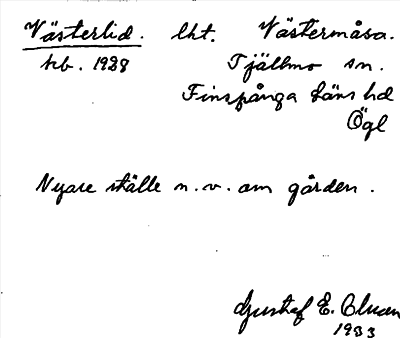 Västerlid. lht. Västermåsa.
kb. 1938 Tjällmo sn.
Finspånga läns hd
Ögl
Nyare ställe n.v. om gården.
Gustaf E.
1933